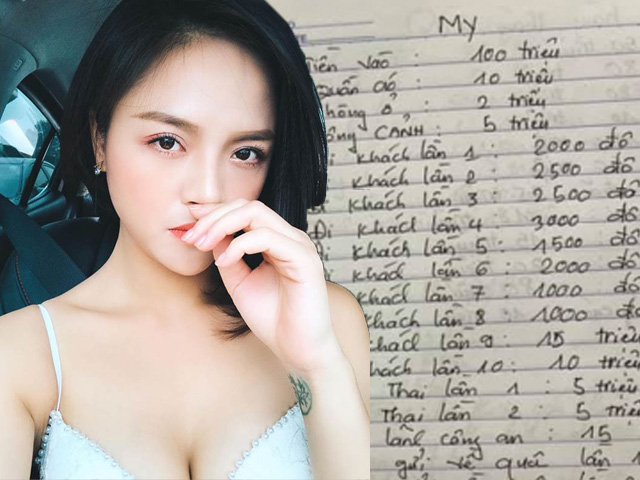 My
Tiền vào : 100 triệu
Quần áo : 10 triệu
Phòng ở : 2 triệu
CẢNH : 5 triệu
Đi khách lần 1 : 2000 đô
khách lần 2 : 2500 đô
khách lần 3 : 2500 đô
Đi khách lần 4 : 3000 đô
Đi khách lần 5 : 1500 đô
khách lần 6 : 2000 đô
khách lần 7 : 1000 đô
khách lần 8 : 1000 đô
khách lần 9 : 15 triệu
khách lần 10 : 10 triệu
Thai lần 1 : 5 triệu
Thai lần 2 : 5 triệu
công an : 15
gửi về quê lần 1